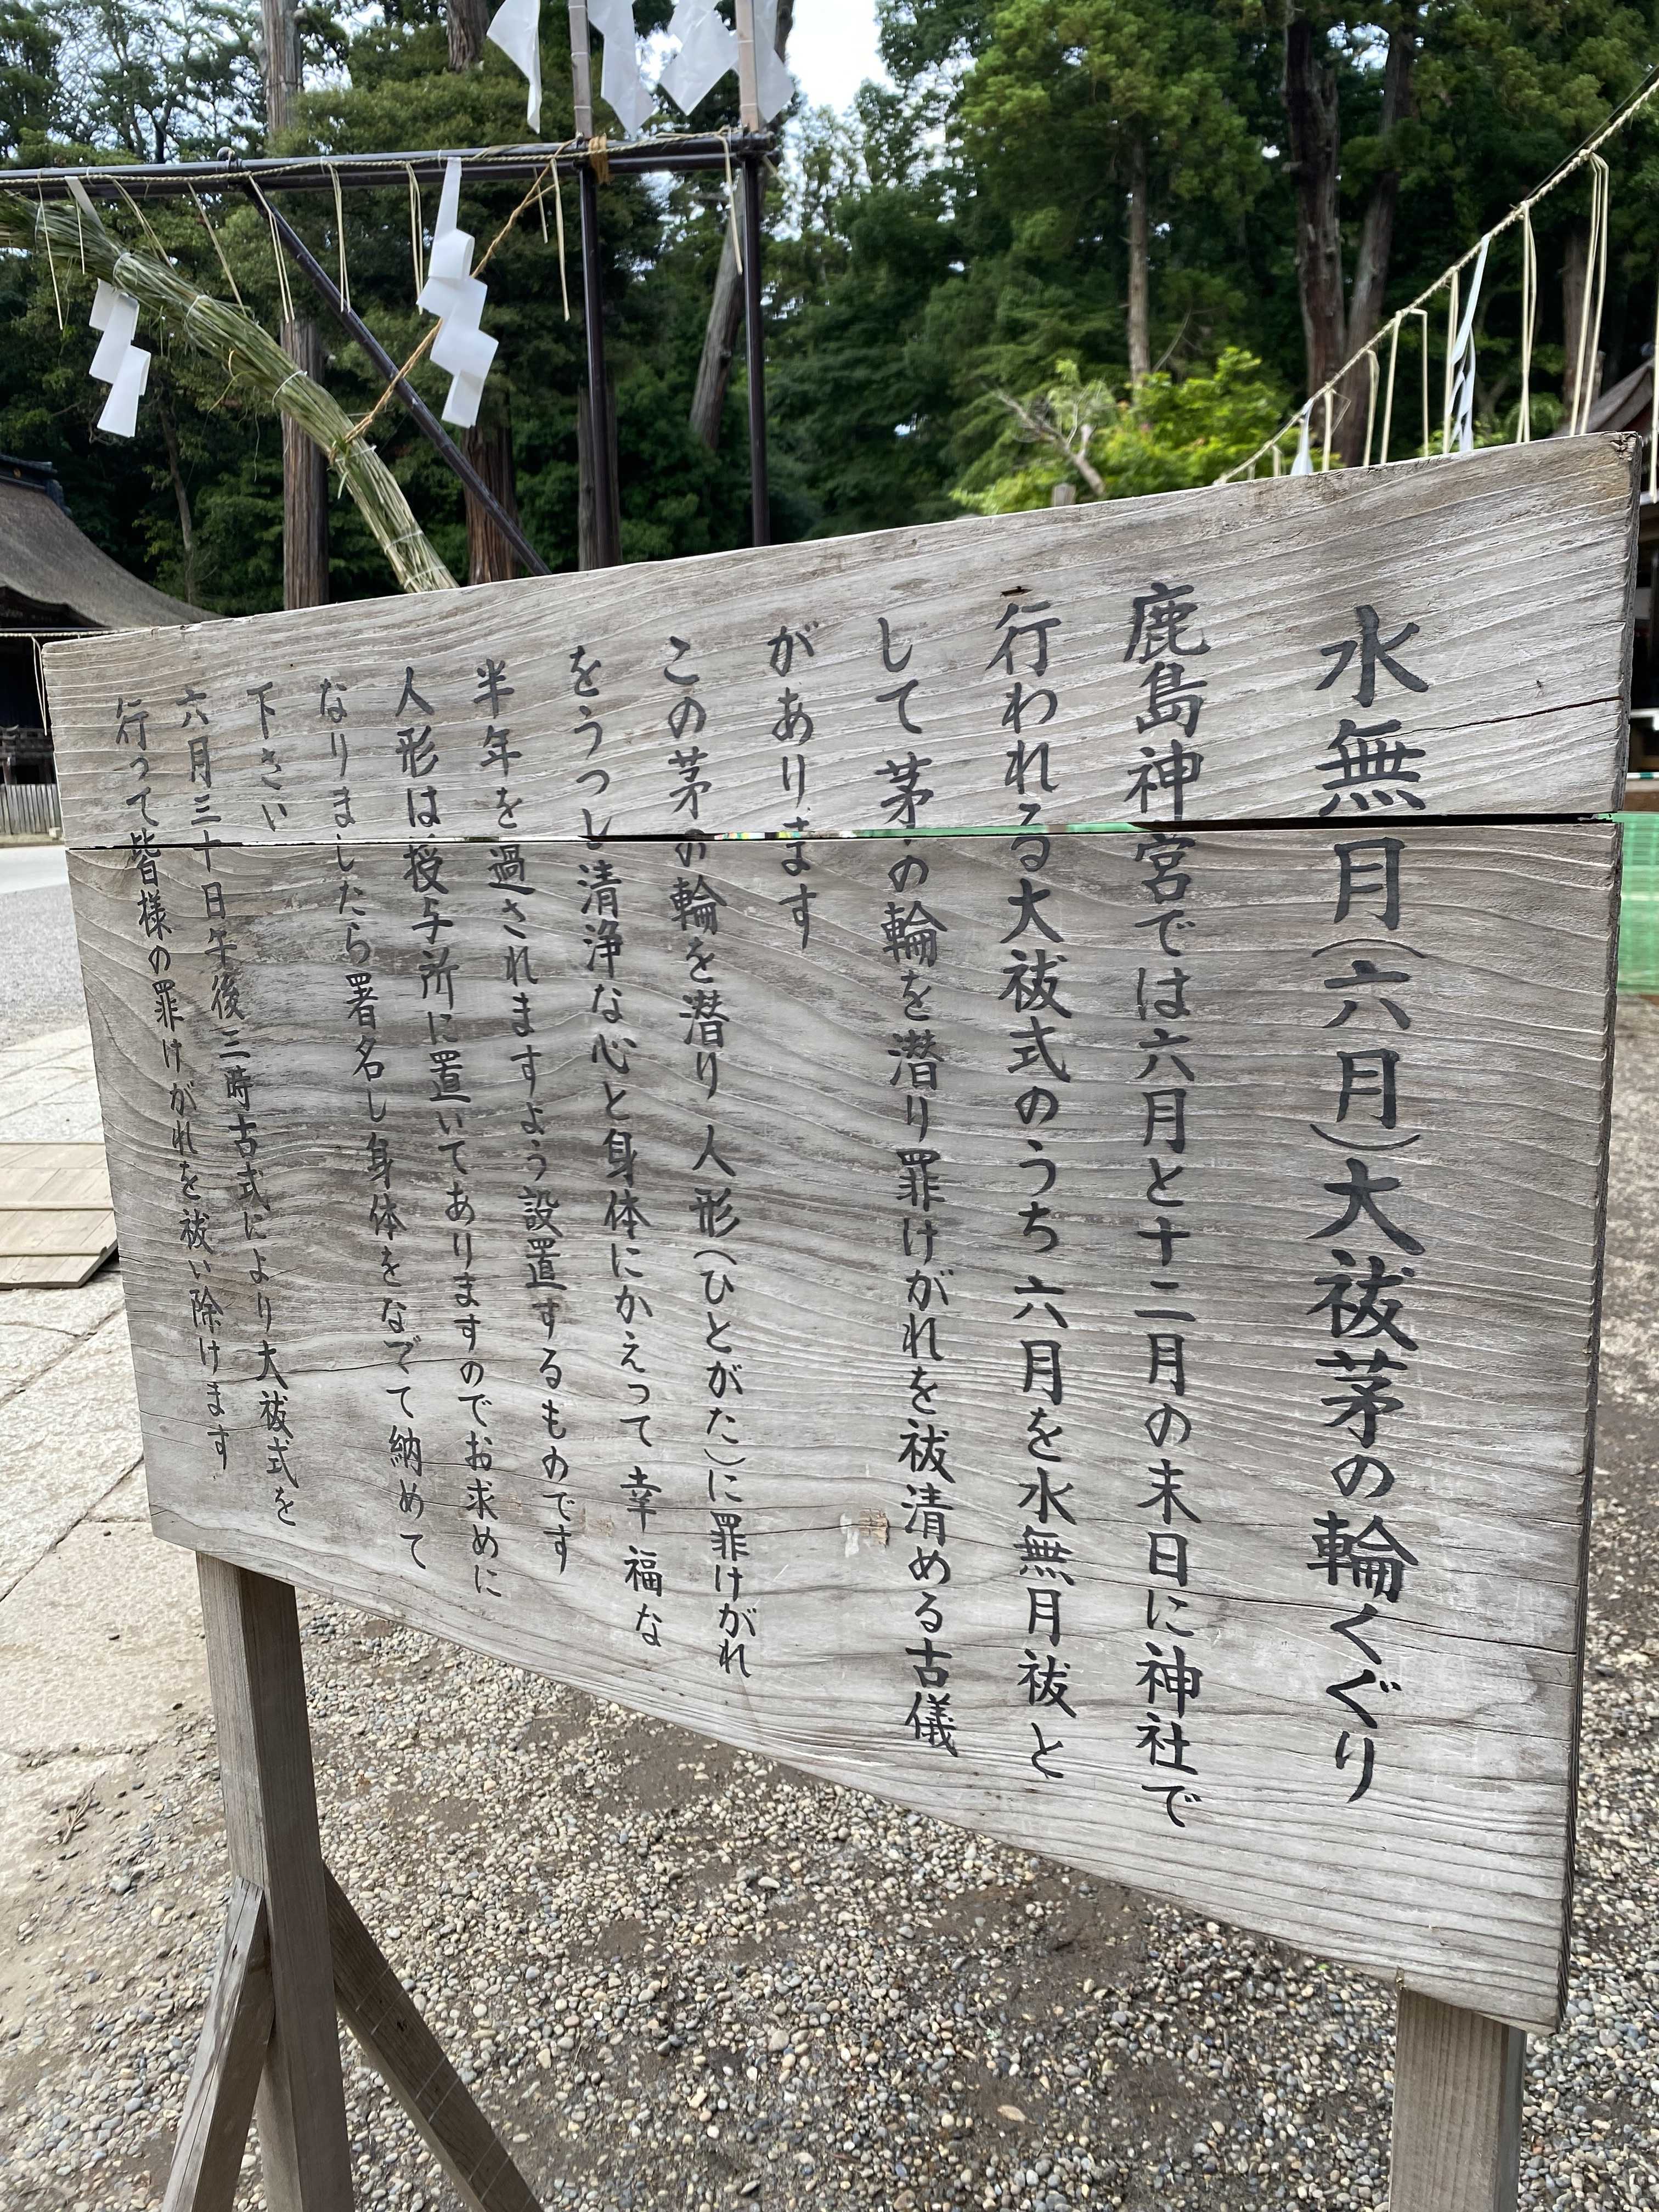 水無月(六月)大祓茅の輪くぐり
鹿島神宮では六月と十二月の末日に神社で
行われる大祓式のうち 六月を水無月祓と
して茅の輪を潜り罪けがれを祓清める古儀
があります
この茅の輪を潜り人形(ひとがた)に罪けがれ
をうつし清浄な心と身体にかえって 幸福な
半年を過されますよう設置するものです
人形は授与所に置いてありますのでお求めに
なりましたら署名し身体をなでて納めて
下さい
六月三十日午後三時古式により大祓式を
行って皆様の罪けがれを祓い除けます